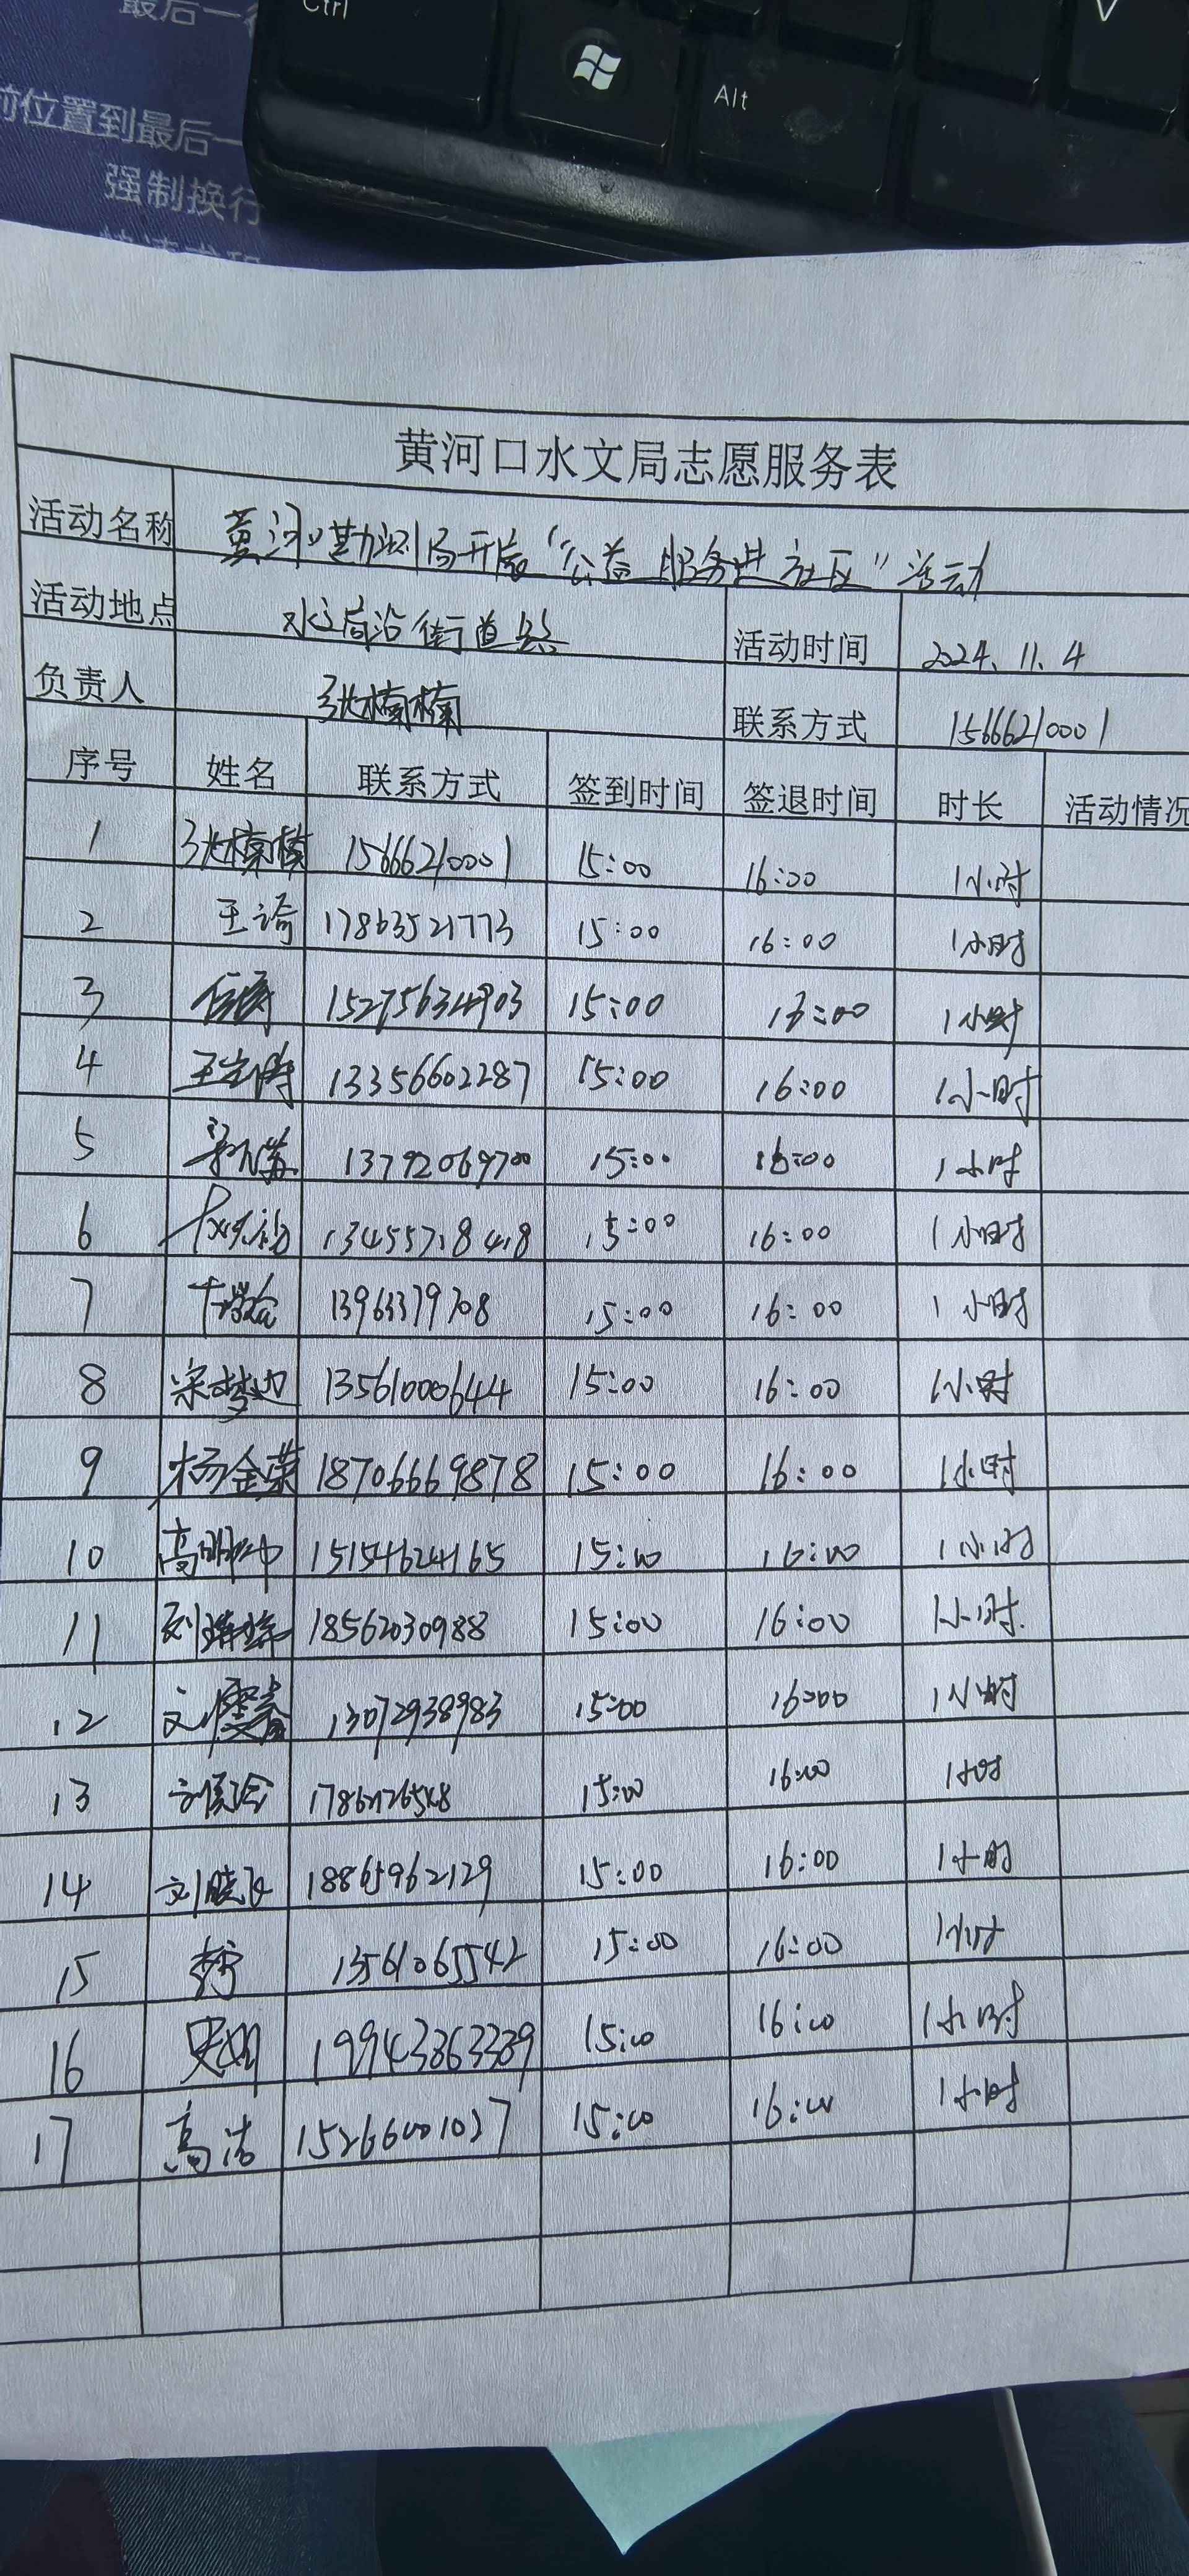 最后一行
前位置到最后一
强制换行
Ctrl
Alt
V
黄河口水文局志愿服务表
活动名称 黄河口勘测局开展“公益服务进社区”活动
活动地点 水文局沿街道路 活动时间 2024.11.4
负责人 张楠楠 联系方式 15666210001
序号 姓名 联系方式 签到时间 签退时间 时长 活动情况
1 张楠楠 15666210001 15:00 16:00 1小时
2 王琦 17863521773 15:00 16:00 1小时
3 15275634903 15:00 16:00 1小时
4 13356602287 15:00 16:00 1小时
5 13792069700 15:00 16:00 1小时
6 13455718418 15:00 16:00 1小时
7 15:00 16:00 1小时
8 宋梦迪 13561000644 15:00 16:00 1小时
9 杨金荣 18706669878 15:00 16:00 1小时
10 15154624165 15:00 16:00 1小时
11 18562030988 15:00 16:00 1小时
12 13072938983 15:00 16:00 1小时
13 15:00 16:00 1小时
14 刘晓飞 18865962129 15:00 16:00 1小时
15 13561065542 15:00 16:00 1小时
16 19943863389 15:00 16:00 1小时
17 高洁 15266001027 15:00 16:00 1小时